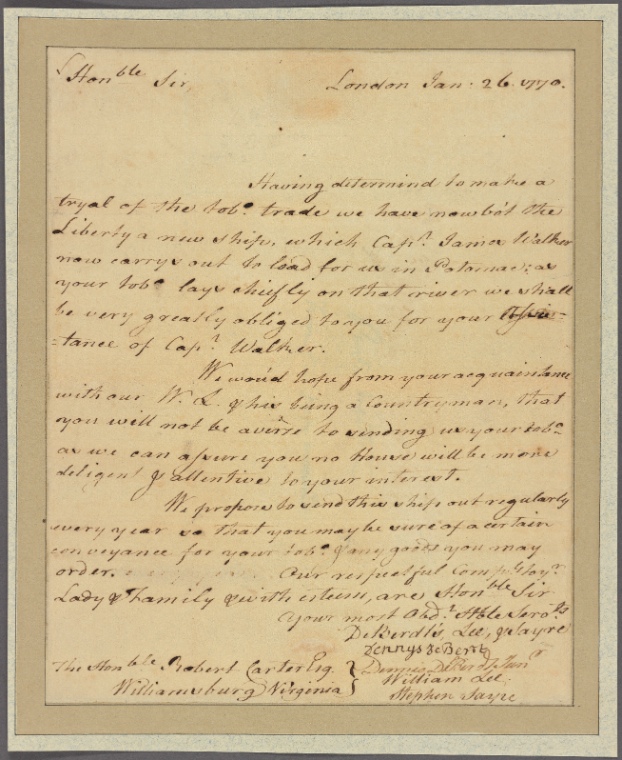 Honble Sir, London Jan: 26. 1770.
Having determind to make a
tryal of the tobo. trade we have now bo't the
Liberty a new ship, which Capt. James Walker
now carrys out to load for us in Potomac; as
your tobo. lays chiefly on that river we shall
be very greatly obliged to you for your Assis-
-tance of Capt. Walker.
We woud hope from your acquaintance
with our W. L. & his being a Countryman, that
you will not be averse to sending us your tobo.
as we can assure you no House will be more
diligent & attentive to your interest.
We propose to send this ship out regularly
every year so that you may be sure of a certain
conveyance for your tobo. & any goods you may
order. Our respectful Compts. to yr.
Lady & Family & with esteem, are Honble Sir
Your most Obdt. Hble Servts
DeBerdts, Lee, & Sayre
Dennys DeBerdt
The Honble Robert Carter Esq. Dennis DeBerdt Junr
Williamsburg Virginia William Lee
Stephen Sayre